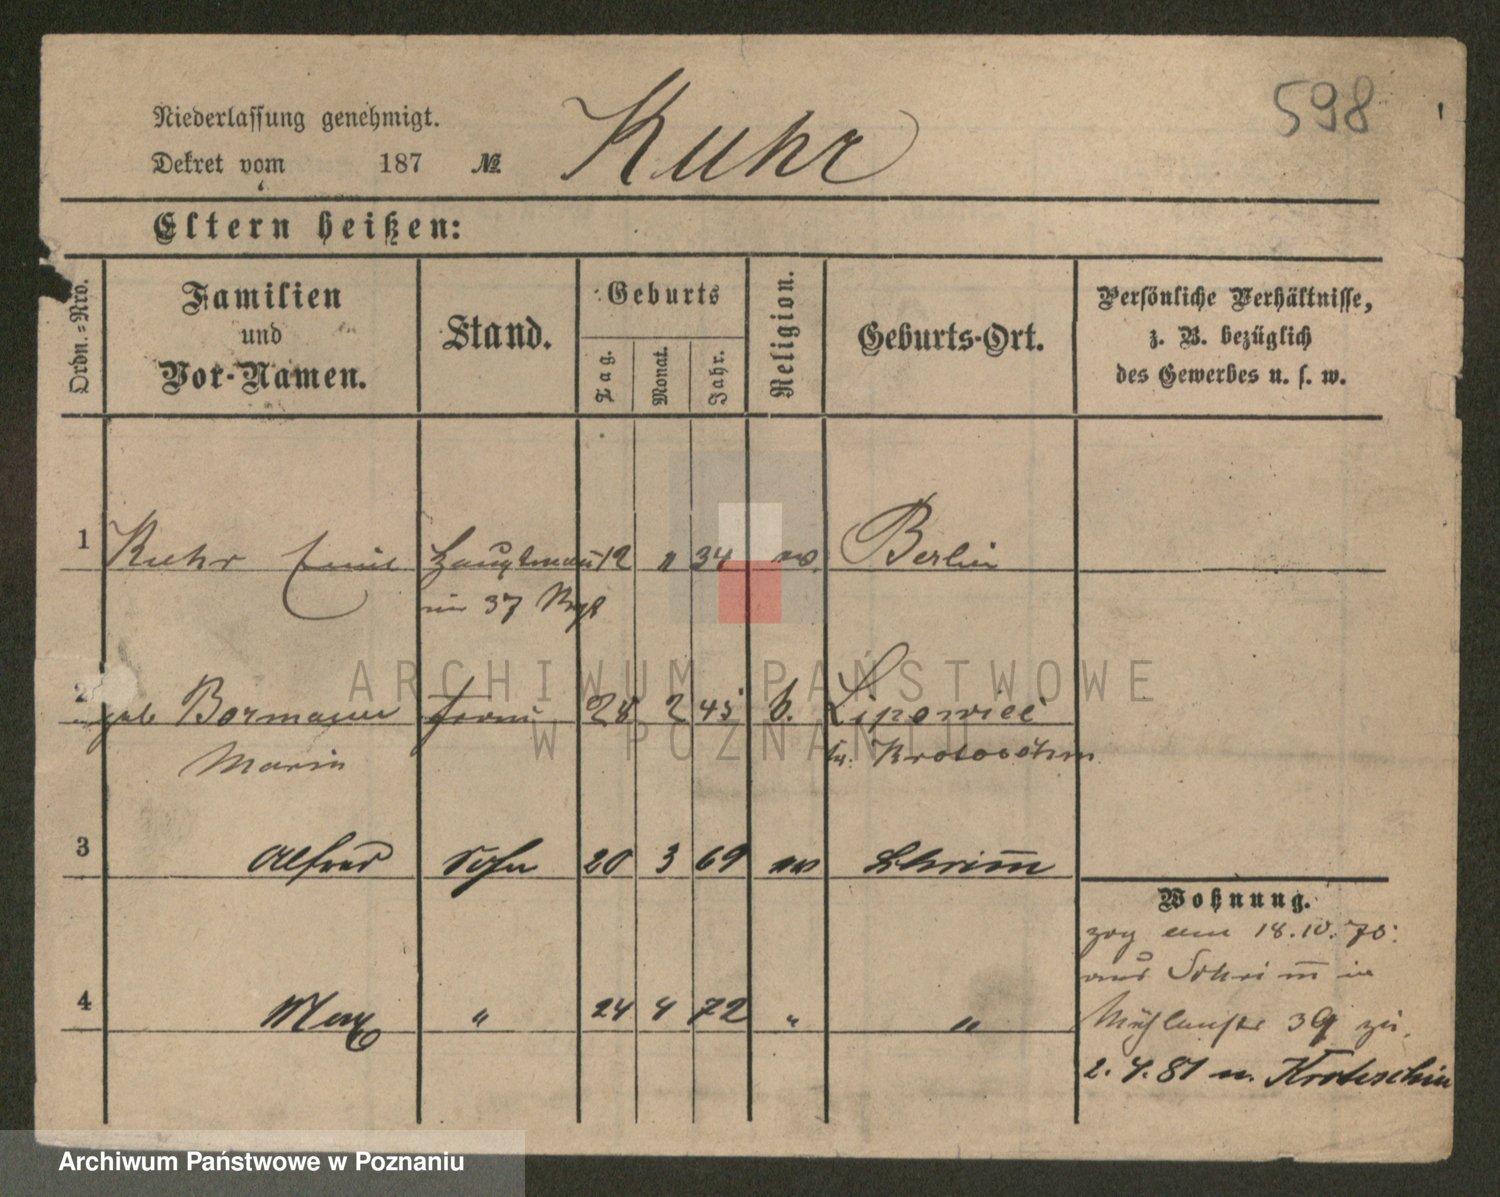 598
Niederlassung genehmigt.
Dekret vom 187 № Kuhr
Eltern heißen:
Ordn.-Nro.
Familien
und
Vor-Namen.
Stand.
Geburts
Tag.
Monat.
Jahr.
Religion.
Geburts-Ort.
Persönliche Verhältnisse,
z. B. bezüglich
des Gewerbes u. s. w.
1 Kuhr Emil Hauptmann 12 34 ev. Berlin
im 37 Regt
2 geb Bormann Frau 28 2 45 k. Lipowiec
Marie Krotoschin
3 Alfred Sohn 20 3 69 ev Schrimm
4 Max " 24 4 72 " "
Wohnung.
zog am 18.10.75.
aus Schrimm in
Mühlenstr 39 zu.
2.4.81 n. Krotoschin
ARCHIWUM PAŃSTWOWE
W POZNANIU
Archiwum Państwowe w Poznaniu